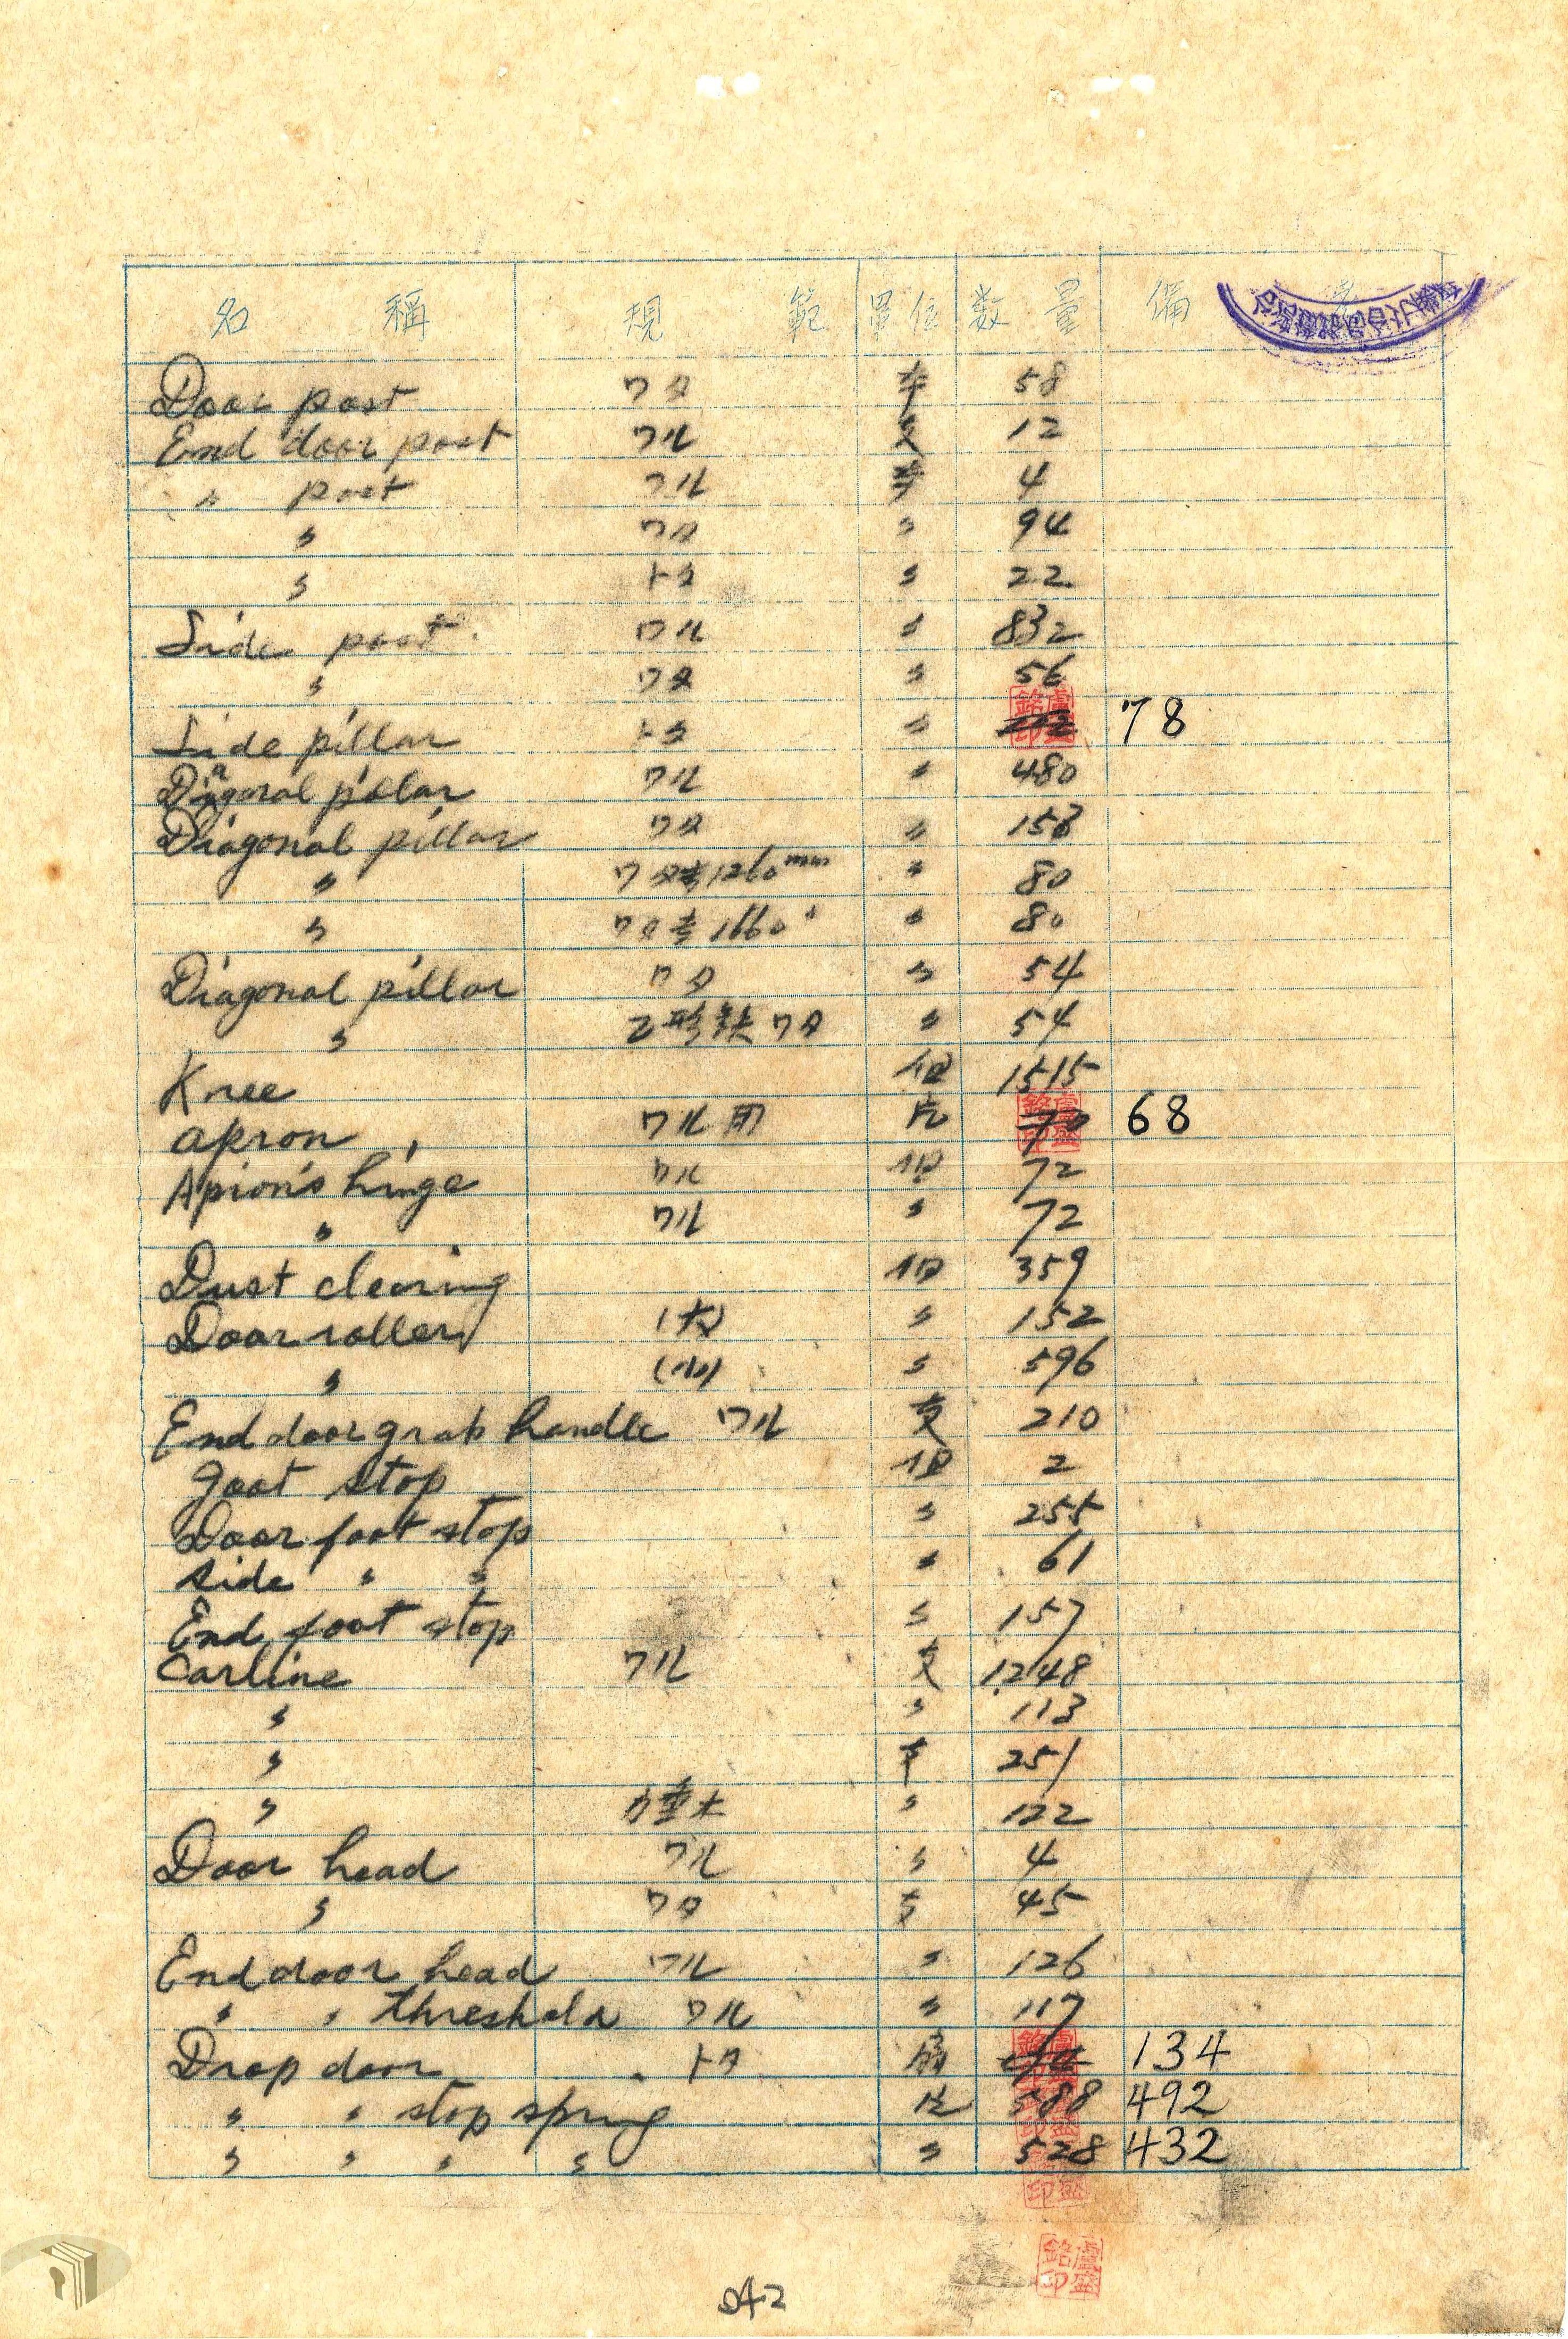 名稱 規範 單位 数量 備
Door post ワタ 本 58
End door post ワル 支 12
〃 post ワル 本 4
〃 ワタ 〃 94
〃 トタ 〃 22
Side post ワル 〃 832
〃 ワタ 〃 56
Side pillar トタ 〃 78
Diagonal pillar ワル 〃 480
Diagonal pillar ワタ 〃 158
〃 ワタ長1260mm 〃 80
〃 ワタ長1660〃 〃 80
Diagonal pillar ワタ 〃 54
〃 乙形鉄ワタ 〃 54
Knee 個 1515
apron ワル用 片 70 68
Apion's hinge ワル 個 72
〃 ワル 〃 72
Dust clearing 個 359
Door roller (大) 〃 152
〃 (小) 〃 596
End door grab handle ワル 支 210
foot stop 個 2
Door foot stop 〃 255
Side 〃 〃 〃 61
End foot stop 〃 157
Carline ワル 支 1,248
〃 〃 113
〃 本 251
〃 〃 122
Door head ワル 〃 4
〃 ワタ 支 45
End door head ワル 〃 126
〃 〃 threshold ワル 〃 117
Drop door トタ 134
〃 〃 stop spring 片 588 492
〃 〃 〃 〃 〃 528 432
盧盛銘印
242